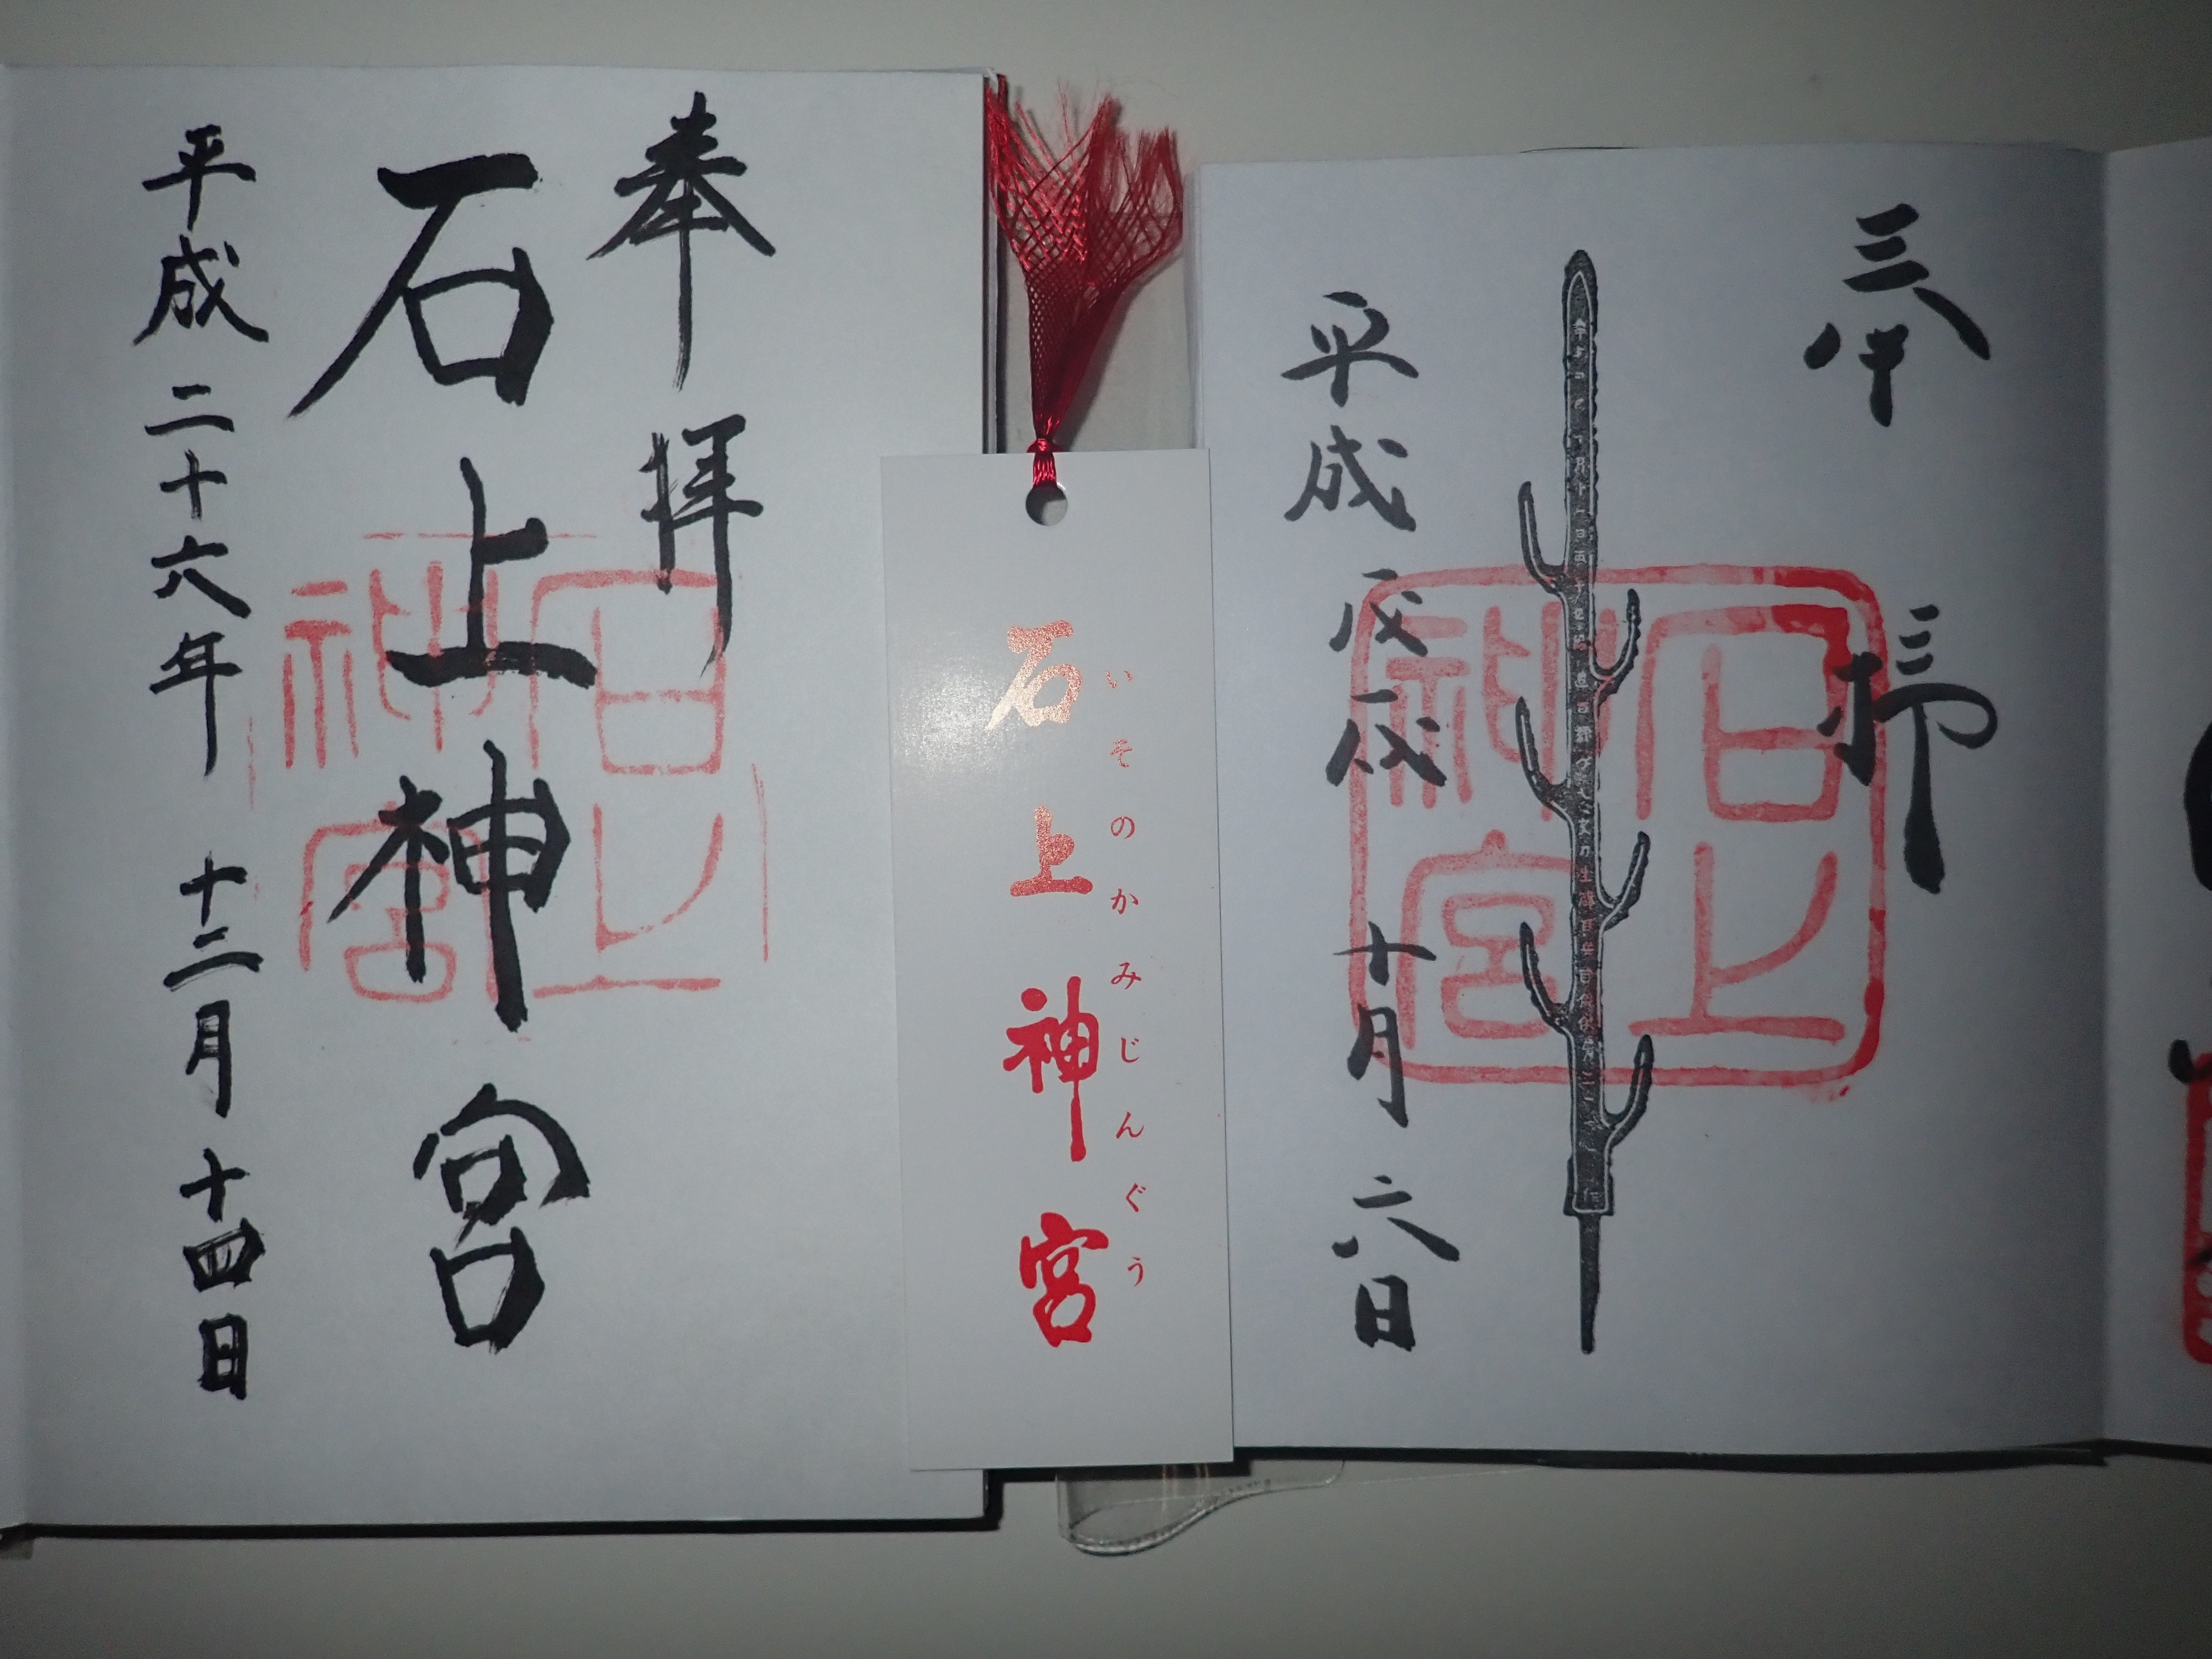 奉拝
石上
神宮
平成戊戌 十月 六日
いそのかみじんぐう
石上神宮
奉拝
石上神宮
石上
神宮
平成二十六年 十二月 十四日